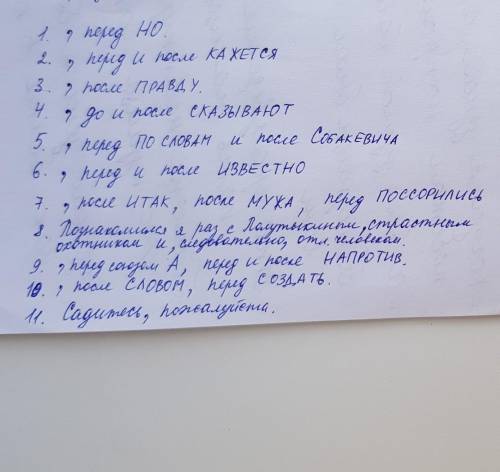 1. , перед НО.
2. , перед и после КАЖЕТСЯ
3. , после ПРАВДУ.
4. , до и после СКАЗЫВАЮТ
5. , перед ПО СЛОВАМ и после СОБАКЕВИЧА
6. , перед и после ИЗВЕСТНО
7. , после ИТАК, после МУЖА, перед ПОССОРИЛИСЬ
8. Познакомился я раз с Полутыкиным, страстным
охотником и, следовательно, отл. человеком.
9. , перед союзом А, перед и после НАПРОТИВ.
10. , после СЛОВОМ, перед СОЗДАТЬ.
11. Садитесь, пожалуйста.